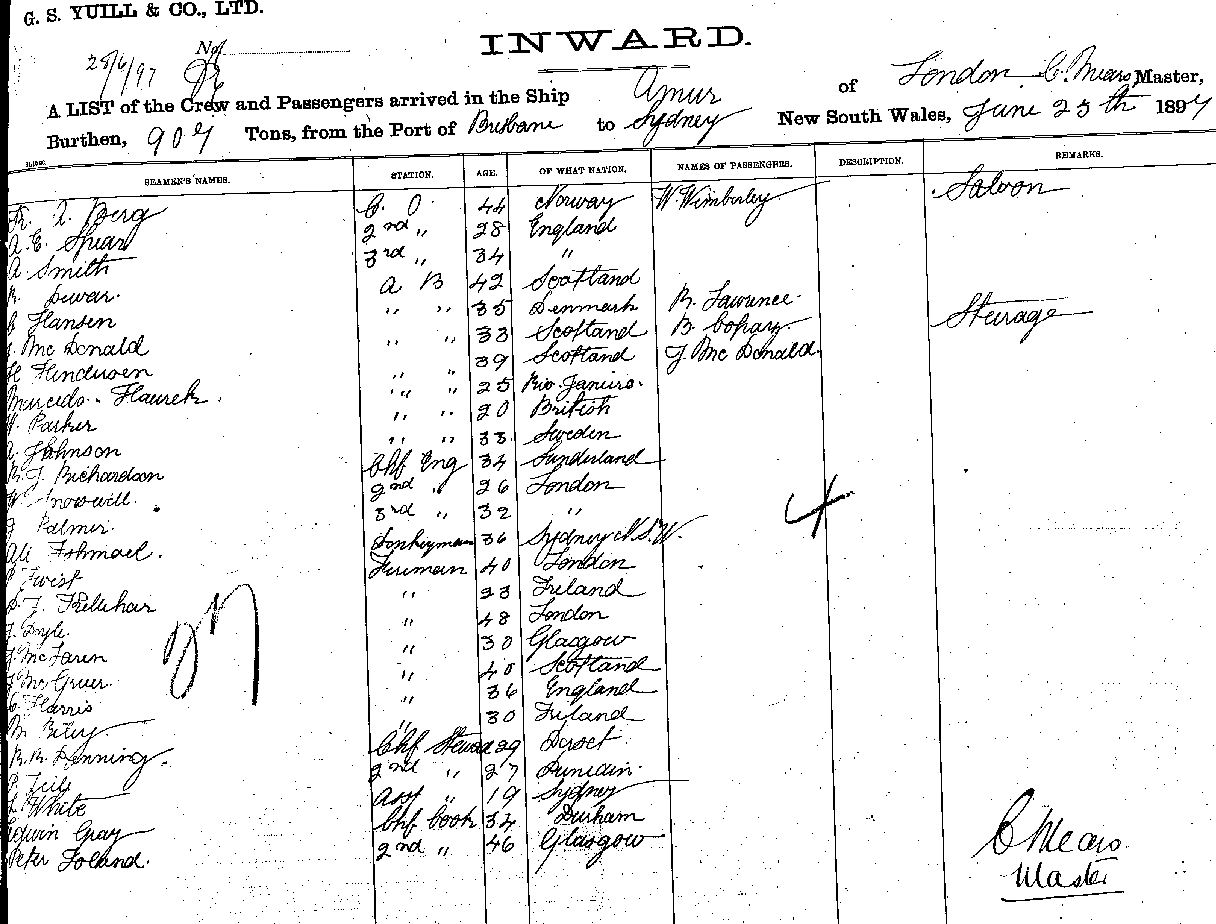 G. S. YUILL & CO., LTD.
No.
INWARD.
28/6/97
A LIST of the Crew and Passengers arrived in the Ship Amur of London C. Mears Master,
Burthen, 907 Tons, from the Port of Brisbane to Sydney New South Wales, June 25th 1897
SEAMEN'S NAMES. STATION. AGE. OF WHAT NATION. NAMES OF PASSENGERS. DESCRIPTION. REMARKS.
Berg C. O. 44 Norway W. Wimberley Saloon
A. E. Spear 2nd " 28 England
A Smith 3rd " 34 "
Dewar. A B 42 Scotland
Hansen " " 35 Denmark R. Lawrence
Mc Donald " " 33 Scotland B. Steerage
H Hendersen " " 39 Scotland J Mc Donald
Mercedo " " 25 Rio Janiro.
W. Parker " " 20 British
Johnson " " 33 Sweden
R. J. Richardson Chf Eng 34 Sunderland
2nd " 26 London
Palmer. 3rd " 32 "
Ali Ishmael. Donkeyman 36 Sydney N.S.W.
Twist Fireman 40 London
Kellehar " 23 Ireland
Doyle. " 48 London
J. McLaren " 30 Glasgow
J McGruer " 40 Scotland
C Harris " 36 England
M " 30 Ireland
R. R. Denning. Chf Steward 29 Dorset
2nd " 27 Dunedin.
White Asst " 19 Sydney
Edwin Gray Chf Cook 34 Durham
Peter Toland. 2nd " 46 Glasgow
27
4
C Mears
Master